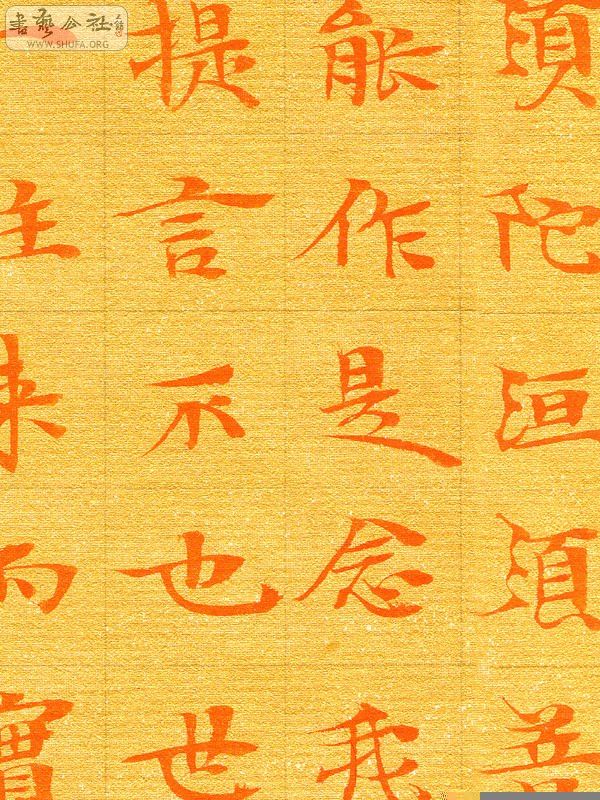 書藝公社
WWW.SHUFA.ORG
須陀洹須菩
能作是念我
提言不也世
往来而實